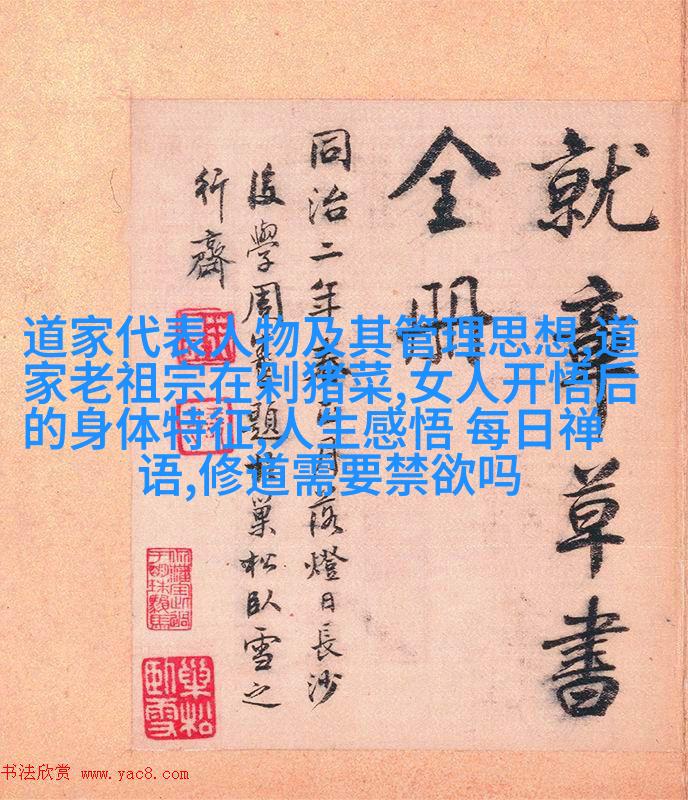 就章草書
全册
同治二年月落燈日長沙
後學周題於巢松臥雪之
行齋
道家代表人物及其管理思想,道
家老祖宗在剁猪菜,女人开悟后
的身体特征,人生感悟 每日禅
语,修道需要禁欲吗
巢松
臥雪
书法欣赏 www.yac8.com